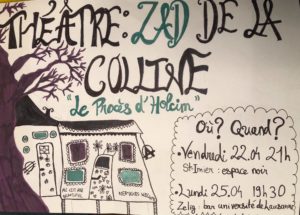 THÉÂTRE: ZAD DE LA
COLLINE
"Le Procès d'Holcim"
Où? Quand?
• Vendredi 22.04 21h
St Imier : espace noir
• Lundi 25.04 19h30
Zelig, bar université de Lausanne